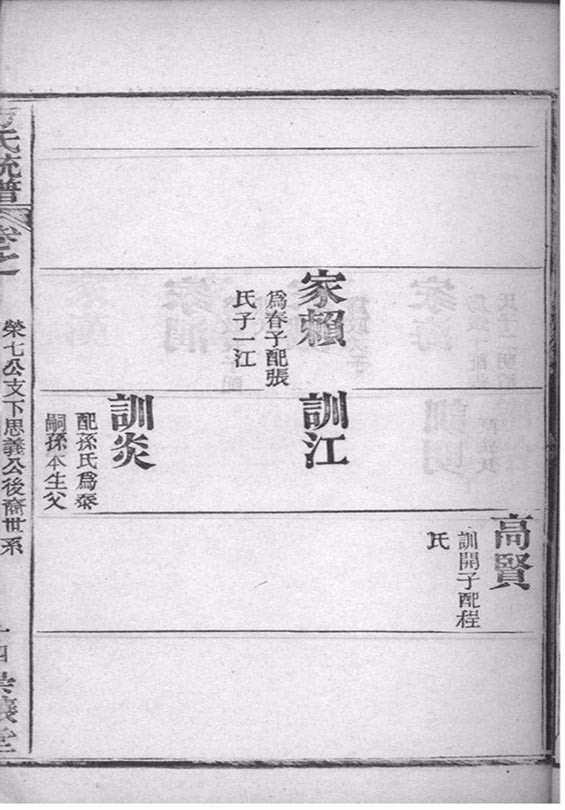 家賴
爲春子配張
氏子一江
訓江
訓炎
配孫氏爲泰
嗣孫本生父
高賢
訓開子配程
氏
氏統譜
卷之一
榮七公支下思義公後裔世系